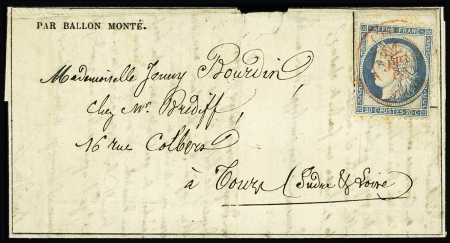 PAR BALLON MONTÉ.
REPUB. FRANC.
Mademoiselle Jenny Bourdin,
chez Mr. Brédiff,
16 rue Colbert
à Tours (Indre & Loire)
20 C POSTES 20 C